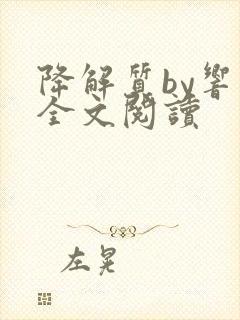 降解質by響
全文閱讀
左晃